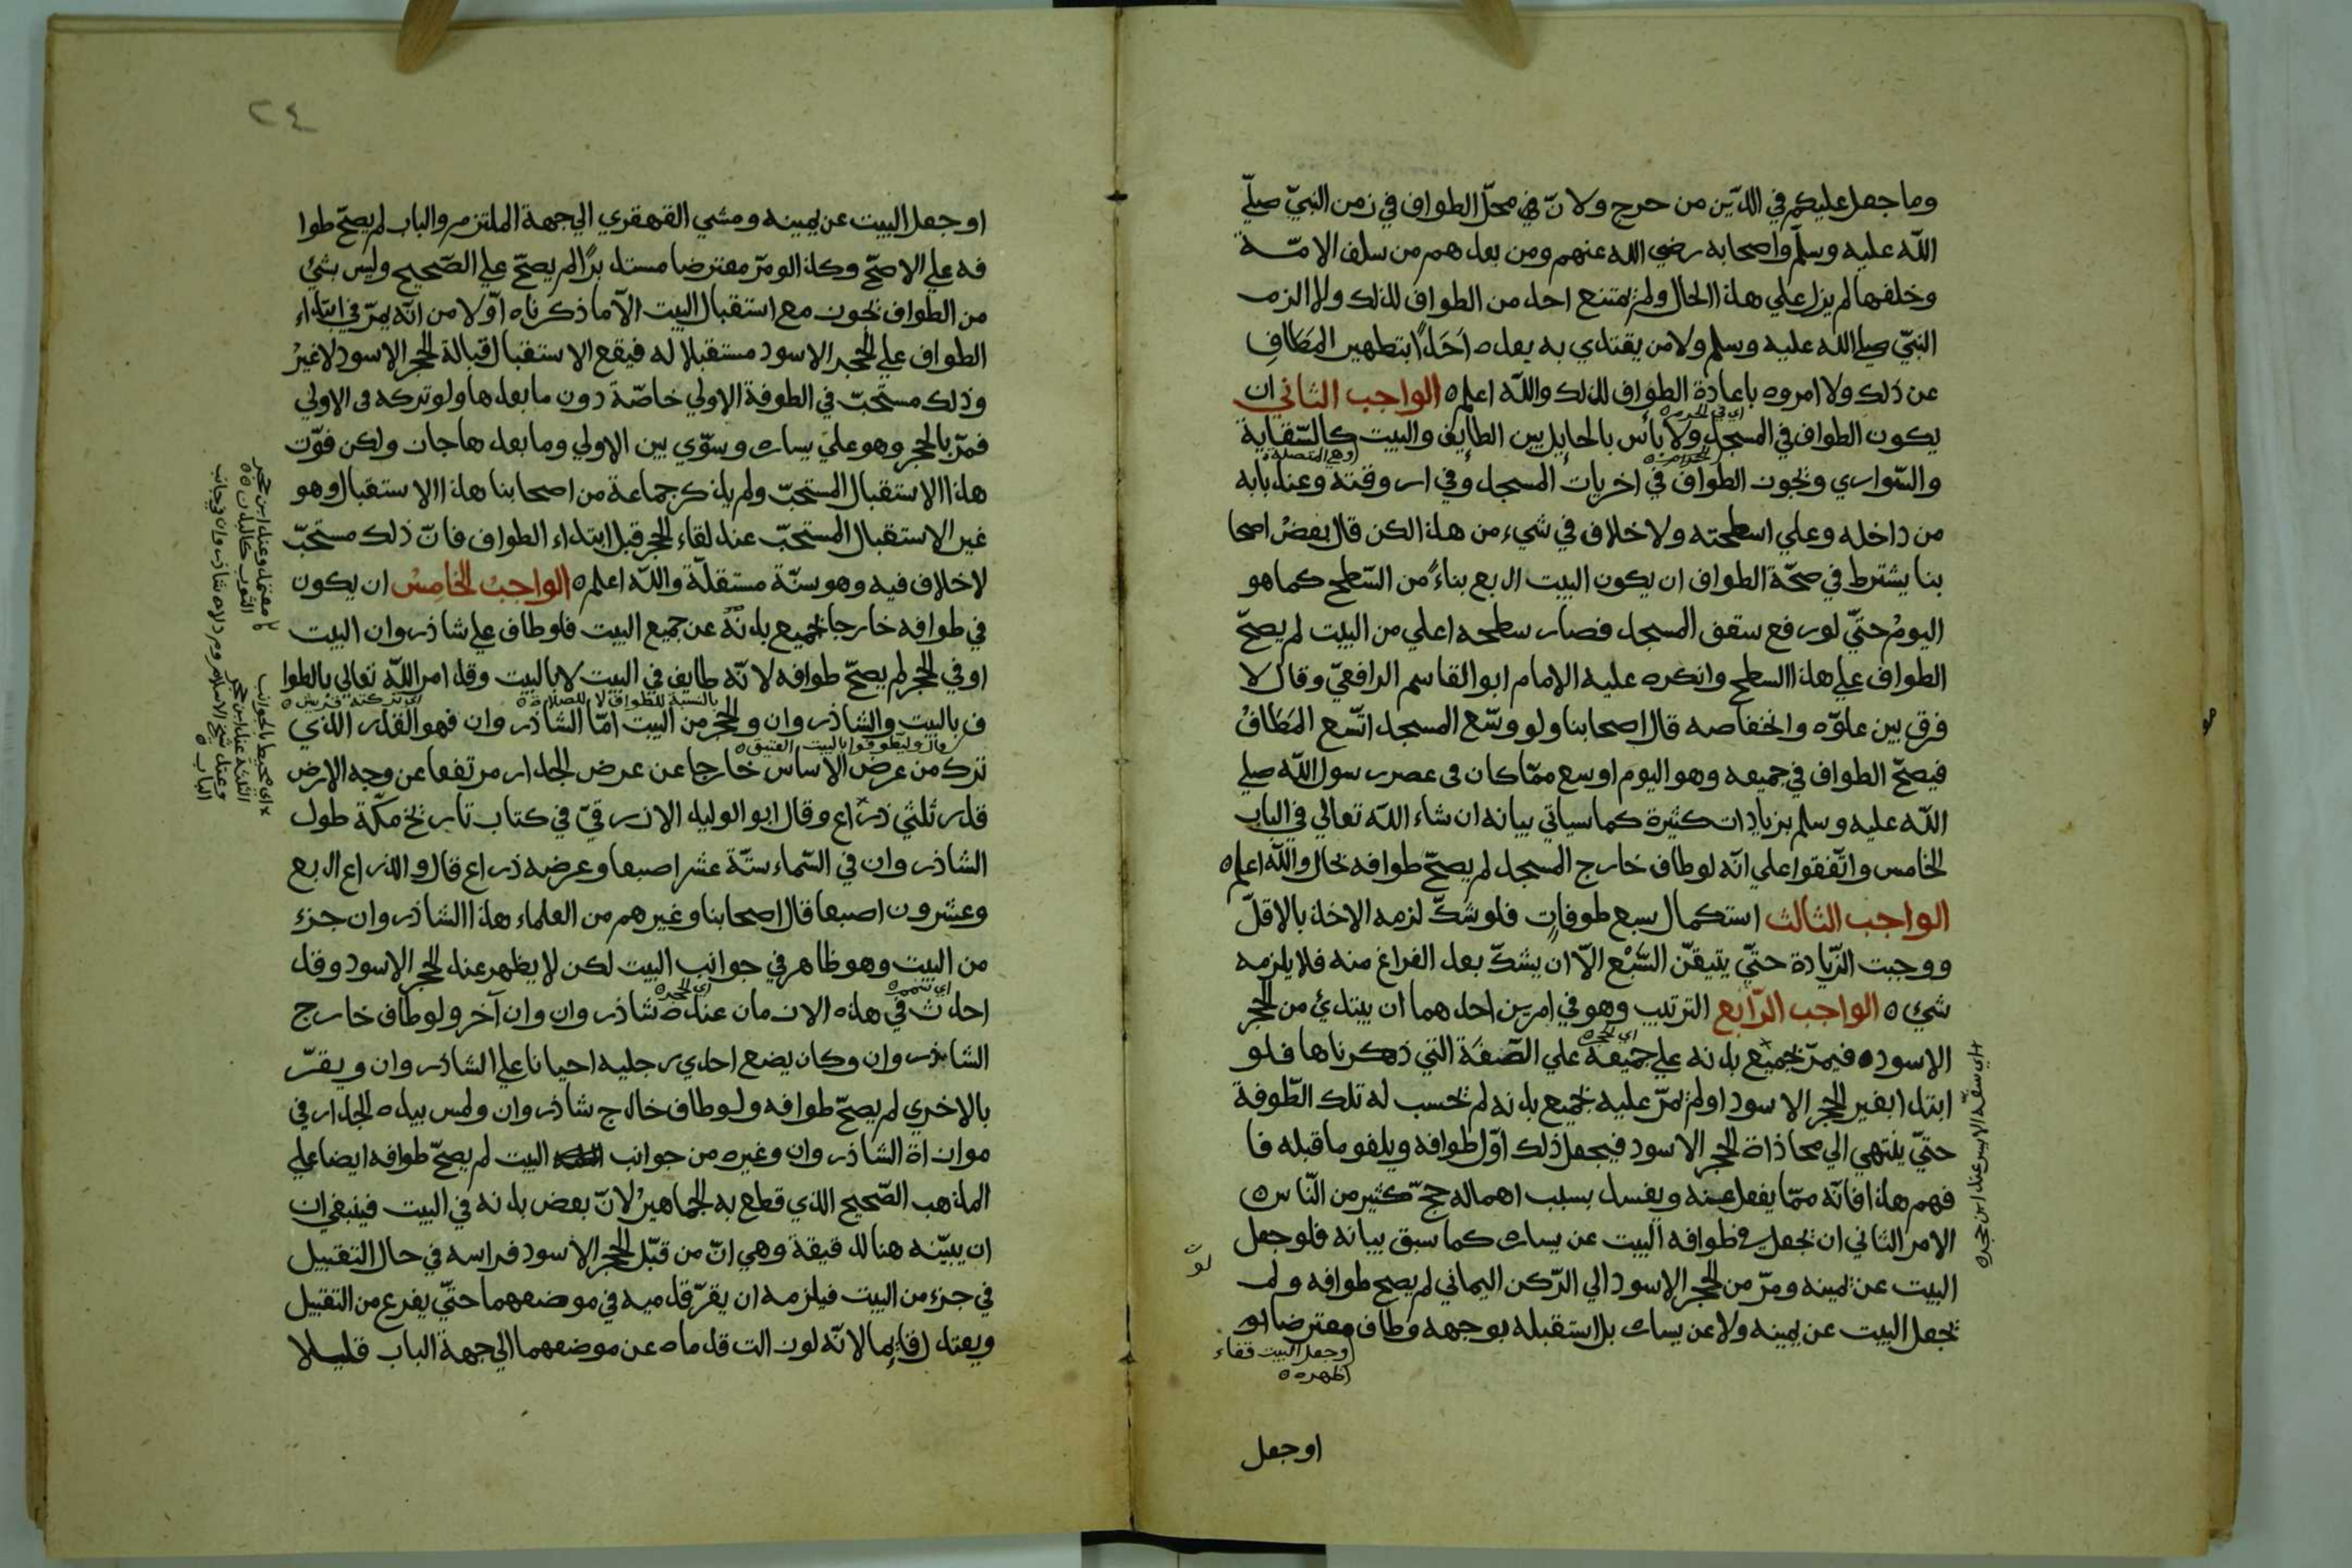 وما جعل عليكم في الدّين من حرج ولانّ في محلّ الطواف في زمن النبيّ صلّي
اللّه عليه وسلّم واصحابه رضي الله عنهم ومن بعدهم من سلف الامّة
وخلفها لم يزل علي هذا الحال ولم يمتنع احد من الطواف لذلك ولا الزم
النبيّ صلي الله عليه وسلم ولا من يقتدي به بعده اَحَدًا بتطهير المَطَافِ
عن ذلك ولا امروه باعادة الطواف لذلك واللّه اعلم ه الواجب الثاني ان
اي في الحرم ه
يكون الطواف في المسجد ولا بأس بالحايل بين الطايف والبيت كالسّقاية
الحرام ه
وهي المتصلة ه
والسّواري ويجوز الطواف في اخريات المسجد وفي اروقته وعند بابه
من داخله وعلي اسطحته ولا خلاف في شيء من هذا لكن قال بعضُ اصحا
بنا يشترط في صحّة الطواف ان يكون البيت ارفع بناءً من السّطح كما هو
اليومُ حتّي لو رفع سقف المسجد فصار سطحه اعلي من البيت لم يصحّ
الطواف علي هذا السطح وانكره عليه الامام ابوالقاسم الرافعيّ وقال لا
فرق بين علوّه وانخفاضه قال اصحابنا ولو وسّع المسجد اتّسع المَطَافُ
فيصحّ الطواف في جميعه وهو اليوم اوسع ممّا كان في عصر رسول اللّه صلي
اللّه عليه وسلم بزيادات كثيرة كما سياتي بيانه ان شاء اللّه تعالي في الباب
الخامس واتّفقوا علي انّه لو طاف خارج المسجد لم يصحّ طوافه بحال واللّه اعلم ه
الواجب الثالث استكمال سبع طوفاتٍ فلو شكّ لزمه الاخذ بالاقلّ
ووجبت الزّيادة حتّي يتيقّن السَّبْع الاّ ان يشكّ بعد الفراغ منه فلا يلزمه
شيئ ه الواجب الرّابع الترتيب وهو في امرين احدهما ان يبتدئ من الحجر
اي الحجر ه
الاسود ه فيمرّ بجميع بدنه علي جميعه علي الصّفَة التي ذكرناها فلو
ابتدا بغير الحجر الاسود او لم يمرّ عليه بجميع بدنه لم تحسب له تلك الطّوفة
حتّي ينتهي الي محاذاة الحجر الاسود فيجعل ذلك اوّل طوافه ويلغو ما قبله فا
فهم هذا فانّه ممّا يغفل عنه ويفسد بسبب اهماله حجّ كثير من النّاس ه
الامر الثاني ان يجعل في طوافه البيت عن يساره كما سبق بيانه فلو جعل
البيت عن يمينه ومرّ من الحجر الاسود الي الرّكن اليماني لم يصح طوافه ولو لم
يجعل البيت عن يمينه ولا عن يساره بل استقبله بوجهه وطاف معترضا او
وجعل البيت قفاء
ظهره ه
اوجعل
اي سقّه الايسر عند ابن حجر ه
٢٤
اوجعل البيت عن يمينه ومشي القهقري الي جهة الملتزم والباب لم يصحّ طوا
فه علي الاصحّ وكذا لو مرّ معترضا مستدبرًا لم يصحّ علي الصّحيح وليس شيئ
من الطواف يجوز مع استقبال البيت الاّ ما ذكرناه اوّلا من انّه يمرّ في ابتداء
الطواف علي الحجر الاسود مستقبلا له فيقع الاستقبال قبالة الحجر الاسود لاغيرُ
وذلك مستحبّ في الطوفة الاولي خاصّة دون ما بعدها ولو تركه في الاولي
فمرّ بالحجر وهو علي يساره وسوّي بين الاولي وما بعدها جاز ولكن فوّت
هذا الاستقبال المستحبّ ولم يذكر جماعة من اصحابنا هذا الاستقبال وهو
غير الاستقبال المستحبّ عند لقاء الحجر قبل ابتداء الطواف فانّ ذلك مستحبّ
لاخلاف فيه وهو سنّة مستقلّة واللّه اعلم ه الواجبُ الخامسُ ان يكون
في طوافه خارجا بجميع بدنه عن جميع البيت فلو طاف علي شاذروان البيت
او في الحجر لم يصحّ طوافه لانّه طايف في البيت لا بالبيت وقد امر اللّه تعالي بالطوا
بالنسبة للطواف لا للصلاة ه ه
اي تركته قريش ه
ف بالبيت والشاذروان والحجر من البيت امّا الشاذروان فهو القدر الذي
قال وليطوفوا بالبيت العتيق ه
ترك من عرض الاساس خارجا عن عرض الجدار مرتفعا عن وجه الارض
قدر ثلثي ذراع وقال ابو الوليد الازرقيّ في كتاب تاريخ مكّة طول
الشاذروان في السّماء ستّة عشر اصبعا وعرضه ذراع قال والذراع اربع
وعشرون اصبعا قال اصحابنا وغيرهم من العلماء هذا الشاذروان جزء
من البيت وهو ظاهر في جوانب البيت لكن لا يظهر عند الحجر الاسود وقد
اي الحجر ه
احدث في هذه الازمان عنده شاذروان وان آخر ولو طاف خارج
الشاذروان وكان يضع احدي رجليه احيانا علي الشاذروان ويقرّ
بالاخري لم يصحّ طوافه ولو طاف خارج شاذروان ولمس بيده الجدار في
موازاة الشاذروان وغيره من جوانب البيت لم يصحّ طوافه ايضا علي
المذهب الصّحيح الذي قطع به الجماهيرُ لانّ بعض بدنه في البيت فينبغي ان
ان يبيّنه هنا لدقيقة وهي انّ من قبّل الحجر الاسود فراسه في حال التقبيل
في جزء من البيت فيلزمه ان يقرّ قدميه في موضعهما حتّي يفرغ من التقبيل
ويعتدل قايما لانّه لو زالت قدماه عن موضعهما الي جهة الباب قليلا
معتمد وعند ابن حجر
الثوب كالبدن ه ه
اي محيط بالجوانب
الثلثة عند ابن حجر
وعند شيخ الاسلام
الباب ه